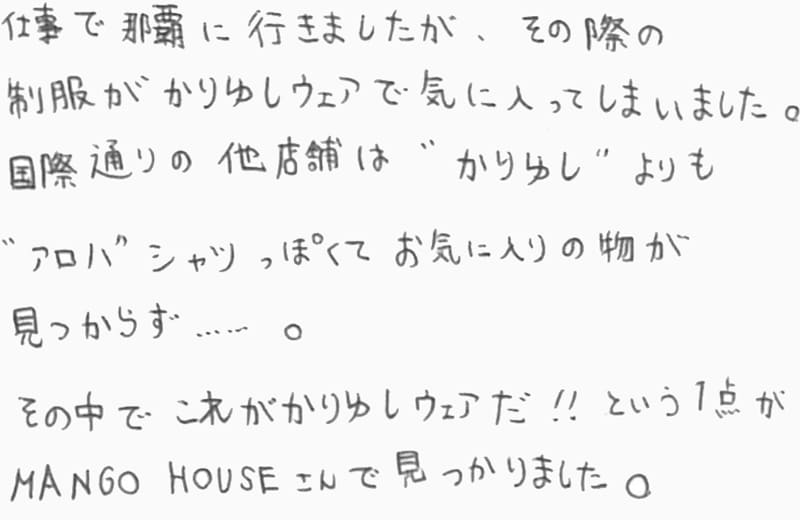 仕事で那覇に行きましたが、その際の
制服がかりゆしウェアで気に入ってしまいました。
国際通りの他店舗は"かりゆし"よりも
"アロハ"シャツっぽくてお気に入りの物が
見つからず……。
その中でこれがかりゆしウェアだ!!という1点が
MANGO HOUSEさんで見つかりました。